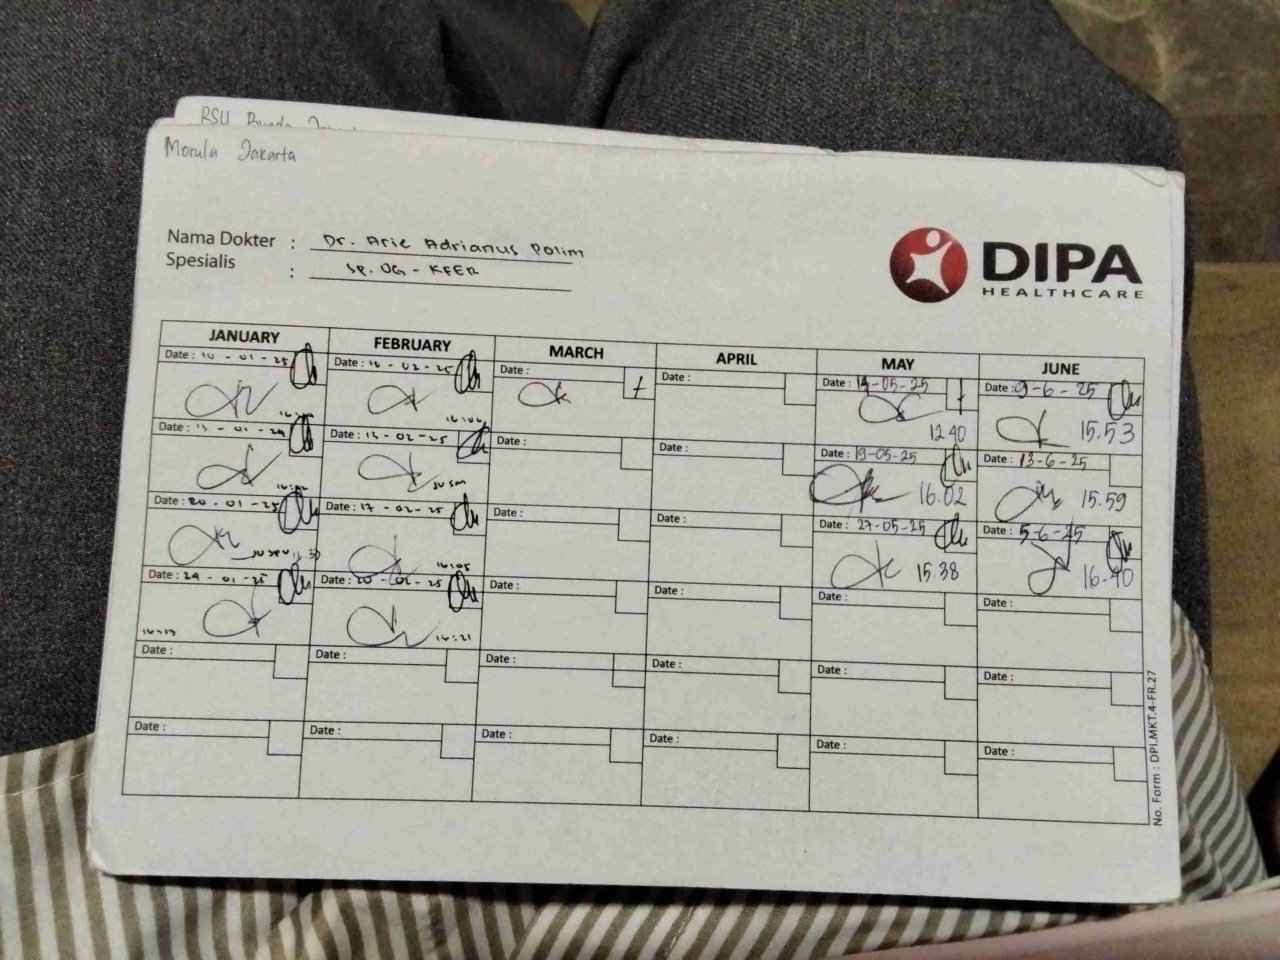 RSU Bunda
Morula Jakarta
Nama Dokter : Dr. Arie Adrianus Polim
Spesialis : Sp. OG - KFER
DIPA
HEALTHCARE
JANUARY FEBRUARY MARCH APRIL MAY JUNE
Date : 10 - 01 - 25 Date : - 02 - 25 Date : Date : Date : -05-25 Date : 9-6-25
12.40 15.53
Date : 13 - 01 - Date : 13 - 02 - 25 Date : Date : Date : 19-05-25 Date : 13-6-25
16.02 15.59
Date : 20 - 01 - 25 Date : 17 - 02 - 25 Date : Date : Date : 27-05-25 Date : 5-6-25
16:05 15.38 16.40
Date : - 01 - 25 Date : 20 - 02 - 25 Date : Date : Date : Date :
16:21
Date : Date : Date : Date : Date : Date :
Date : Date : Date : Date : Date : Date :
No. Form : DPI.MKT.4-FR.27